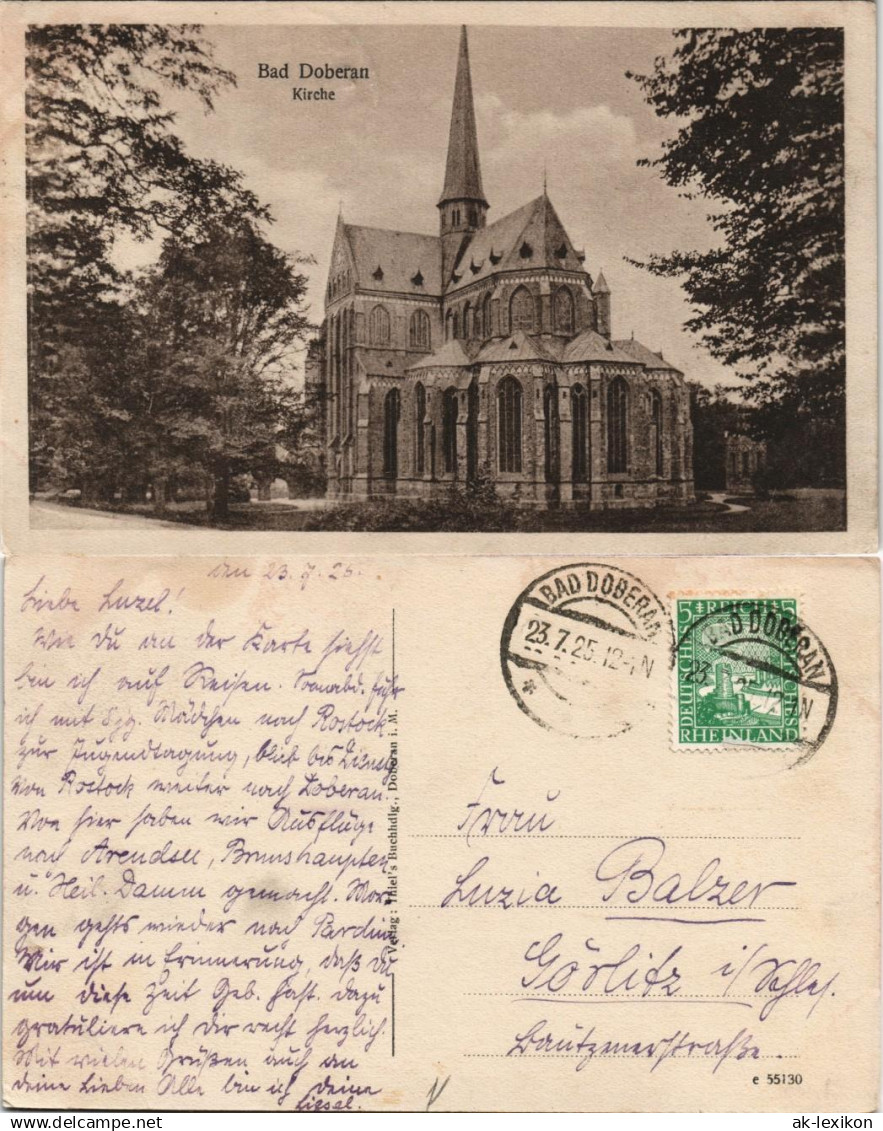 Bad Doberan
Kirche
den 23.7.25.
Liebe Luzel!
Wie Du an der Karte siehst
bin ich auf Reisen. Sonnabd. fuhr
ich mit Mädchen nach Rostock
zur Jugendtagung, blieb bis
Von Rostock weiter nach Doberan.
Von hier haben wir Ausflüge
nach Arendsee, Brunshaupten
u. Heil. Damm gemacht. Mor-
gen gehts wieder nach
Mir ist in Erinnerung, daß Du
um diese Zeit Geb. hast. dazu
gratuliere ich Dir recht herzlich.
Mit vielen Grüßen auch an
deine Lieben Alle bin ich deine
Liesel.
Verlag: Thiel's Buchhdlg., Doberan i. M.
BAD DOBERAN
23.7.25.12-1N
BAD DOBERAN
5 REICH 5
DEUTSCHES
REICHS
RHEINLAND
Frau
Luzia Balzer
Görlitz i/Schles.
Bautzenerstraße.
e 55130
ak-lexikon